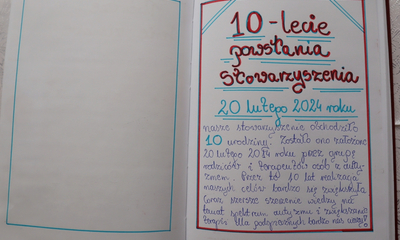 10-lecie
powstania
Stowarzyszenia
20 lutego 2024 roku
nasze stowarzyszenie obchodziło
10 urodziny. Zostało ono założone
20 lutego 2014 roku przez grupę
rodziców i terapeutów osób z auty-
zmem. Przez te 10 lat realizacja
naszych celów bardzo się
coraz szersze wiedzy na
temat spektrum autyzmu i zwiększanie
terapii dla podopiecznych bardzo nas